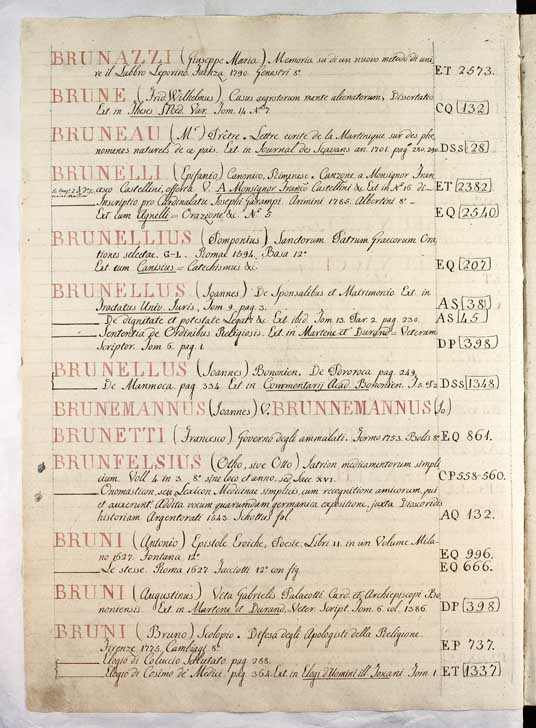 BRUNAZZI (Giuseppe Maria) Memoria su di un nuovo metodo di uni=
re il Labbro Leporino. Faenza 1790. Genestri 8º ET 2573.
BRUNE (Frid. Wilhelmus) Casus aegrotorum mente alienatorum, Dissertatio
Ext in Theses Med. Var. Tom. 14. Nº 7. CQ 132
BRUNEAU (Mr.) Prêtre = Lettre ecrite de la Martinique sur des phe=
nomenes naturels de ce pais. Ext. in Journal des Sçavans an 1701. pag. 280. 290. DSS 28
BRUNELLI (Epifanio) Canonico, Riminese = Canzone a Monsignor Fran=
cesco Castellini, offerta V. A Monsignor Franco Castellini &. Ext in Nº 16. ET 2382
Inscriptio pro Cardinalatu Josephi Garampi. Arimini 1785. Albertini 8º
Ext. cum Agnelli = Orazione &c. Nº 5 EQ 2540
BRUNELLIUS (Pomponius) Sanctorum Patrum Graecorum Ora
tiones selectae. G-L. Romae 1594. Basa 12º
Ext. cum Canisius = Catechismus &c EQ 207
BRUNELLUS (Joannes) De Sponsalibus et Matrimonio. Ext. in
Tractatus Univ. Juris, Tom 9. pag 3. AS 38
De dignitate et potestate Legati &c. Ext ibid Tom 13. Par. 2. pag 230. AS 45
Sententia de Ordinibus Religiosis. Ext. in Martene et Durand = Veterum
Scriptor. Tom 6. pag 1. DP 398
BRUNELLUS (Joannes) Bononien. De Pororoca pag 249.
De Manioca. pag 334. Ext in Commentarij Acad. Bononien. DSS 1348
BRUNEMANNUS (Joannes) V. BRUNNEMANNUS (Jo.)
BRUNETTI (Francesco) Governo degli ammalati. Fermo 1793. Bolis 8º EQ 861.
BRUNFELSIUS (Otho, sive Otto) Iatrion medicamentorum simpli
cium. Voll. 4 in 3. 8º sine loco et anno, sed Saec. XVI. CP 558-560.
Onomastion, seu Lexicon Medicinae simplicis, cum recognitione amicorum, qui
et auxerunt. Addita vocum quarumdam germanica expositione, juxta Dioscoridis
historiam Argentorati 1543. Schottus fol. AQ 132.
BRUNI (Antonio) Epistole Eroiche, Poesie. Libri II. in un Volume Mila=
no 1627. Fontana 12º EQ 996.
Le stesse. Roma 1627 Facciotti 12º con fig. EQ 666.
BRUNI (Augustinus) Vita Gabrielis Palaeotti Card. et Archiepiscopi Bo
noniensis. Ext. in Martene et Durand, Veter. Script. Tom. 6. col. 1386. DP 398
BRUNI (Bruno) Scolopio. Difesa degli Apologisti della Religione.
Firenze 1775. Cambiagi 8º EP 737.
Elogio di Coluccio Salutato. pag 288.
Elogio di Cosimo de' Medici. pag. 364. Ext. in Elogj d'Uomini ill. Toscani Tom 1. ET 1337